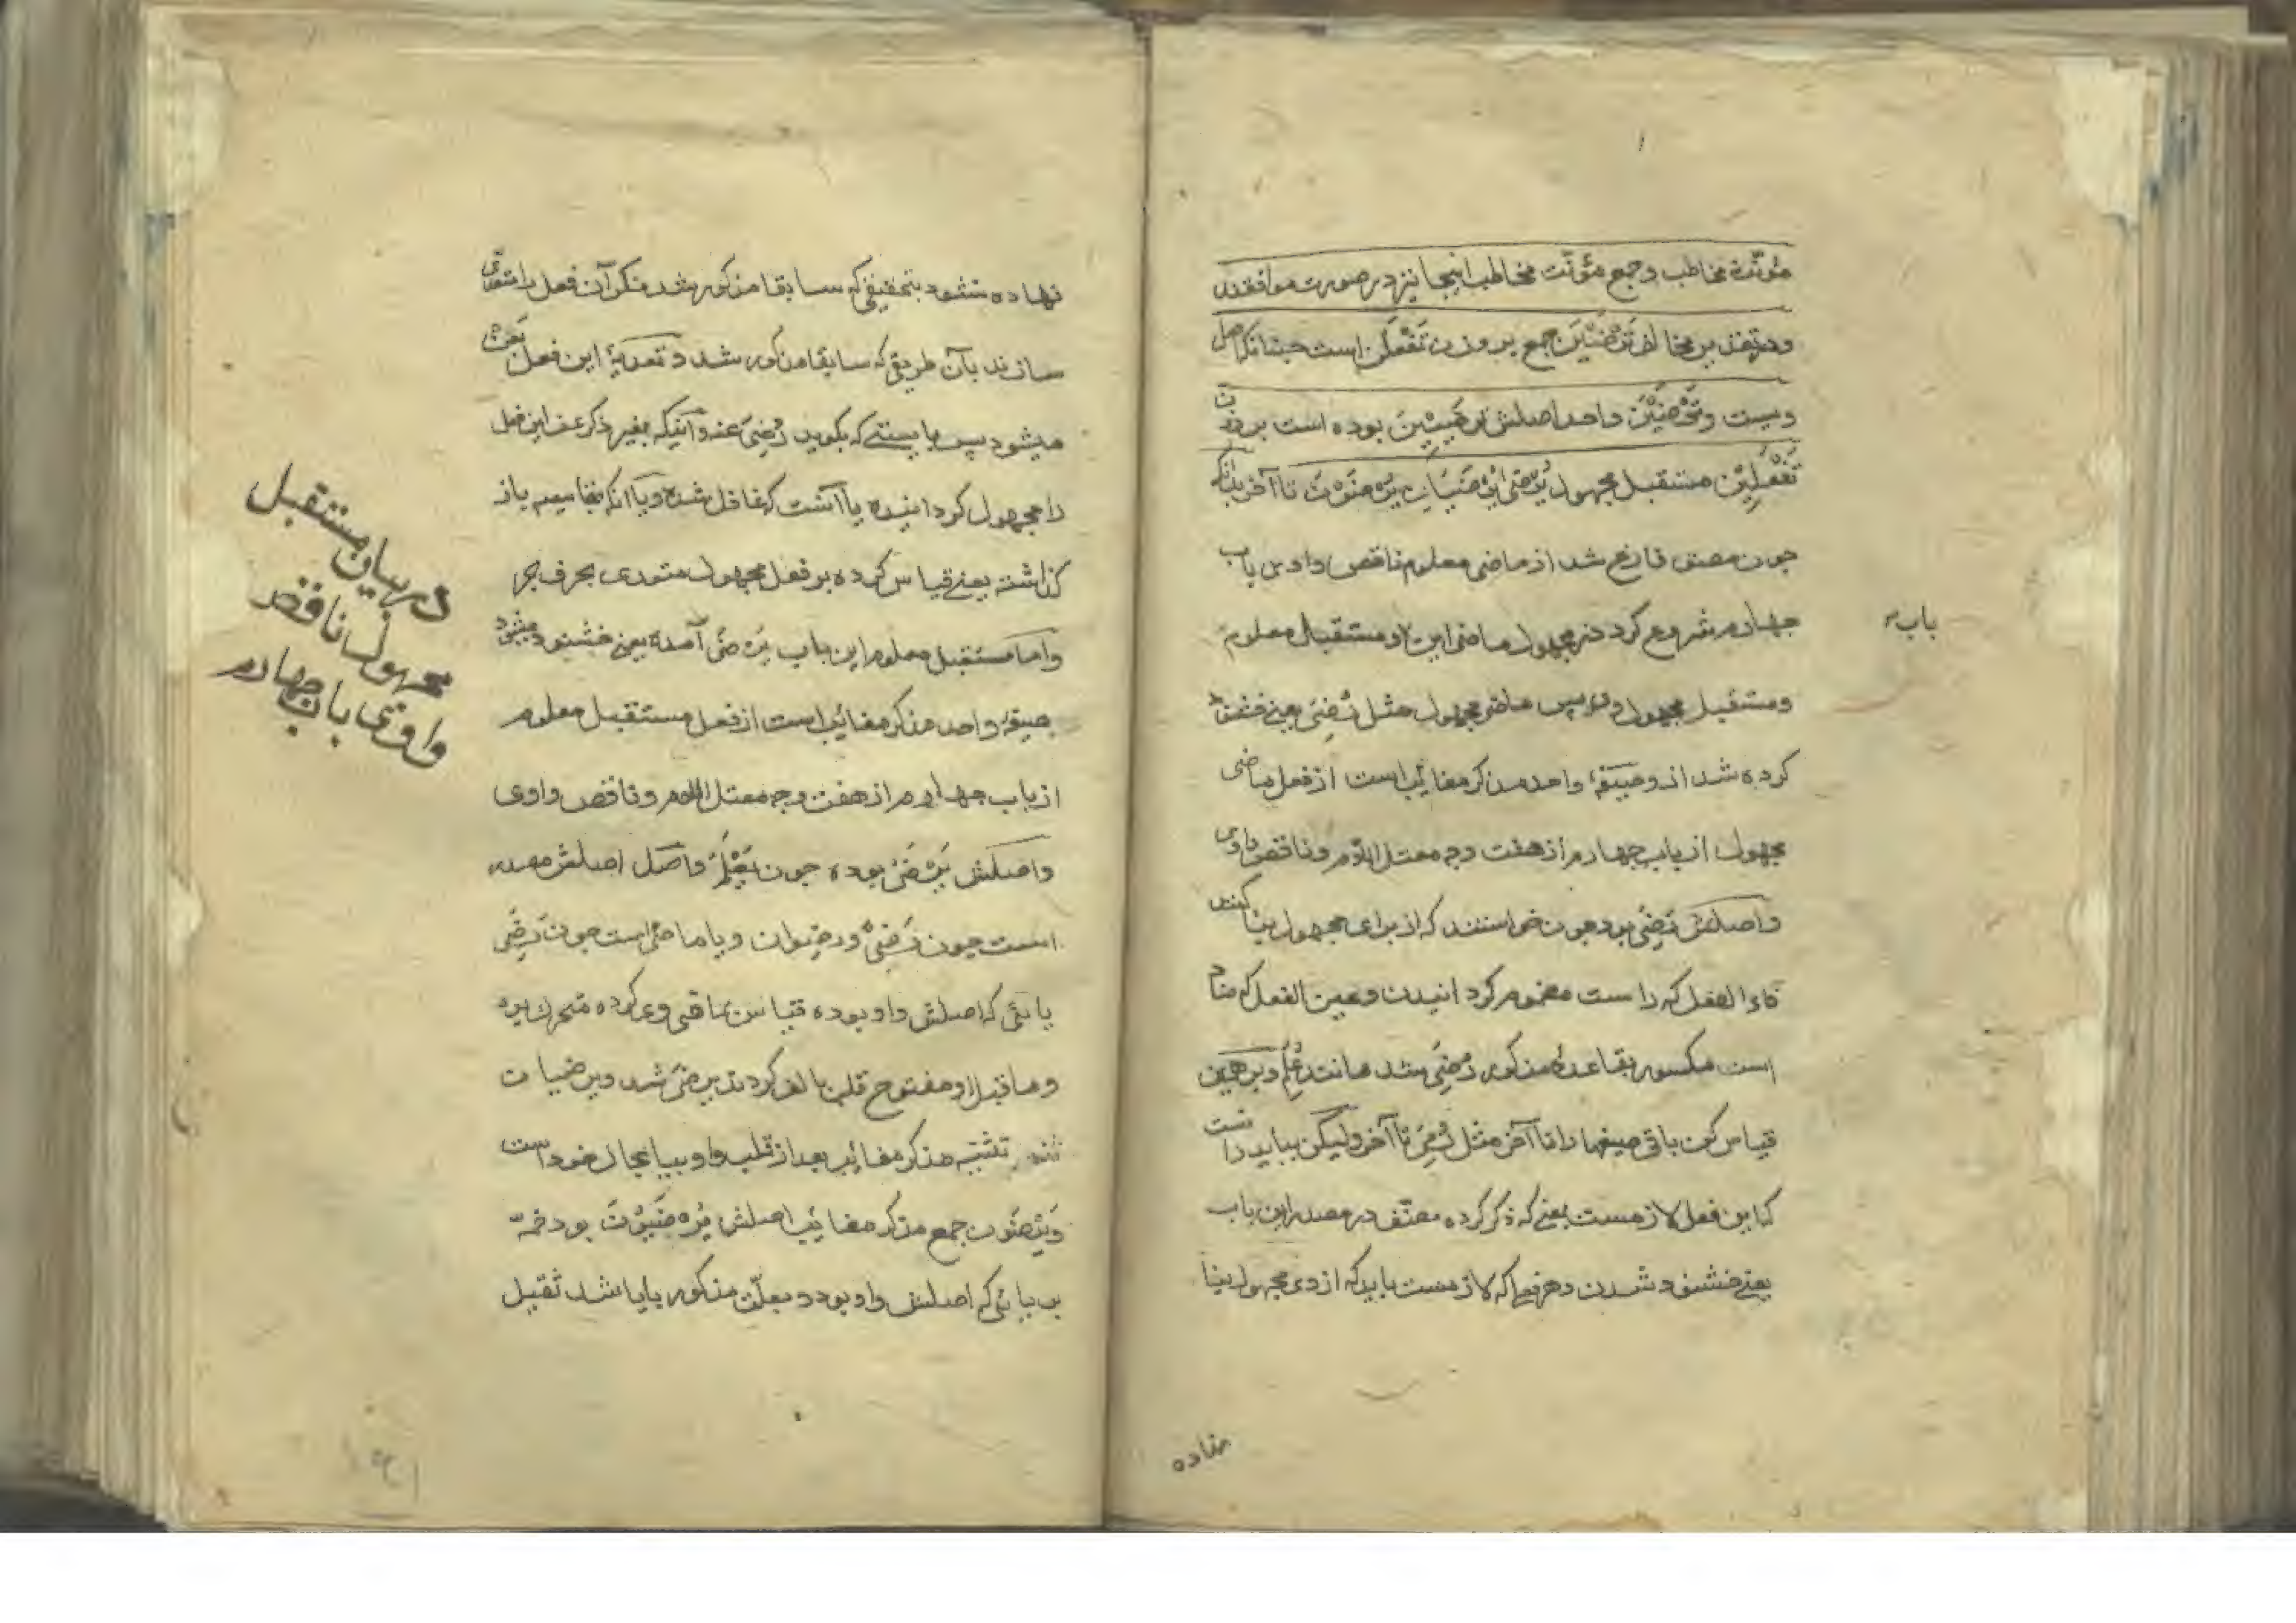 مؤنثهٔ مخاطب و جمع مؤنث مخاطب اینجا نیز در صورت موافقند
و در تقدیر مخالف تَرْضَیْنَ جمع بر وزن تَفْعَلْنَ است چنانکه اصل
ویست و تَرْضَیْنَ واحد اصلش تَرْضَیِیْنَ بوده است بر وزن
تَفْعَلِیْنَ مستقبل مجهول یُرْضَیٰ یُرْضَیَانِ یُرْضَوْنَ تا آخر بدانکه
چون مصنف فارغ شد از ماضی معلوم ناقص واوی باب
چهارم شروع کرد در مجهول ماضی این و مستقبل معلوم
باب
و مستقبل مجهول وی پس ماضی مجهول مثل رُضِیَ یعنی خشنود
کرده شد از و صیغهٔ واحد مذکر مغایب است از فعل ماضی
مجهول از باب چهارم از هفت وجه معتل اللام و ناقص واوی
و اصلش رَضِیَ بود چون خواستند که از برای مجهول بنا کنند
فاء الفعل که را ست مضموم گردانیدن و عین الفعل که ضاد
است مکسور بقاعدهٔ مذکور رُضِیَ شد مانند عُلِمَ و برهمین
قیاس کن باقی صیغها را تا آخر مثل رُمِیَ تا آخر ولیکن بباید دانست
که این فعل لازمست یعنی که ذکر کرده مصنف در مصدر این باب
یعنی خشنود شدن و هر فعلی که لازمست باید که از وی مجهول بنا
نهاده
نهاده نشود بتحقیقی که سابقا مذکور شد مگر آن فعل را متعدی
سازند بآن طریقی که سابقا مذکور شد و تعدیهٔ این فعل بعن
میشود پس بایستی که بگوید رُضِیَ عنه و آنیکه بغیر ذکر عن این فعل
را مجهول گردانیده یا آنست که غافل شده و یا آنکه
گذاشته یعنی قیاس کرده بر فعل مجهول متعدی بحرف جر
و اما مستقبل معلوم این باب یَرْضَیٰ آمده یعنی خشنود میشود
صیغهٔ واحد مذکر مغایب است از فعل مستقبل معلوم
از باب چهارم از هفت وجه معتل اللام و ناقص واوی
و اصلش یَرْضَیُ بوده چون یَعْلَمُ و اصل اصلش مصدر
است چون رَضِیٌ و رضوان و یا ماضی است چون رَضِیَ
یائی که اصلش واو بوده قیاس ماقبل وی کرده متحرک بود
و ماقبل او مفتوح قلب بالف کردند یرضی شد و یرضیان
تثنیه مذکر مغایب بعد از قلب واو بیا بحال خود است
و یَرْضَوْنَ جمع مذکر مغایب اصلش یَرْضَیُوْنَ بود ضمه
بر یائی که اصلش واو بود و بعلت مذکور یا شد ثقیل
در بیان مستقبل
مجهول ناقص
واوی باب چهارم